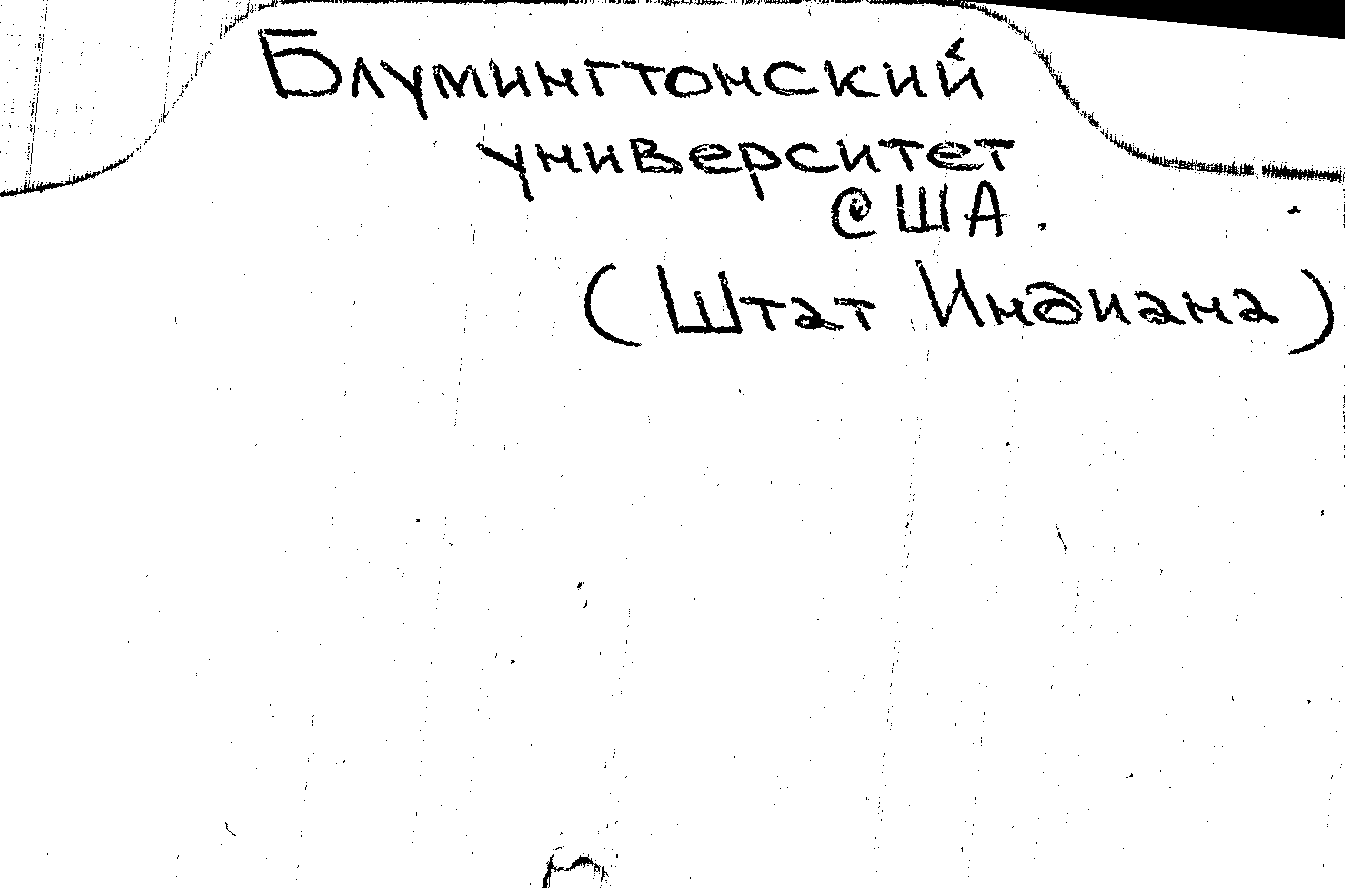 Блумингтонский
университет
США.
(Штат Индиана)